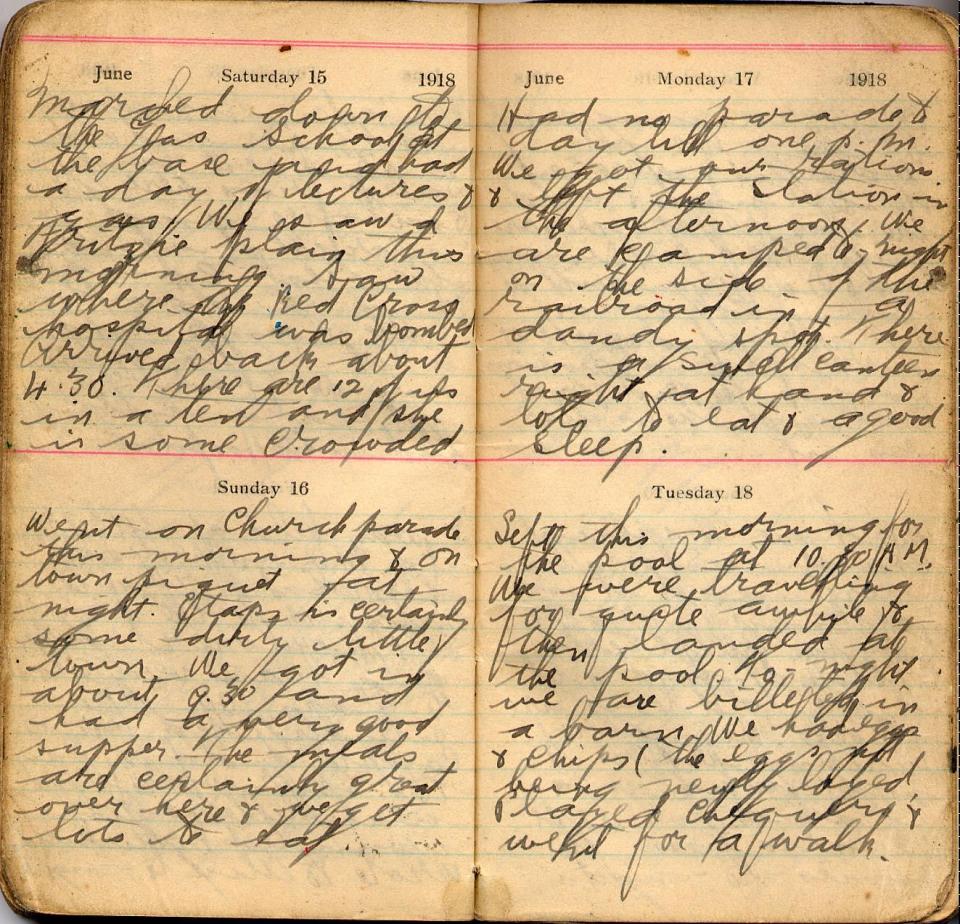 June Saturday 15 1918
Marched down to
the Gas School at
the base and had
a day of lectures &
gas. We saw a
Fritzie plain this
morning. Saw
where the Red Cross
hospital was bombed
Arrived back about
4.30. There are 12 of us
in a tent and she
is some crowded.
Sunday 16
Went on Church parade
this morning & on
town piquet at
night. Etaps is certainly
some dirty little
town. We got in
about 9.30 and
had a very good
supper. The meals
are certainly great
over here & we get
lots to eat.
June Monday 17 1918
Had no parade to
day till one p.m.
We got our rations
& left the station in
the afternoon. We
are camped to-night
on the side of the
railroad in a
dandy spot. There
is a small canteen
right at hand &
lots to eat & a good
sleep.
Tuesday 18
Left this morning for
the pool at 10.30 A.M.
We were travelling
for quite awhile &
then landed at
the pool. To-night
we are billeted in
a barn. We had eggs
& chips (the eggs not
being newly layed,
Played &
went for a walk.